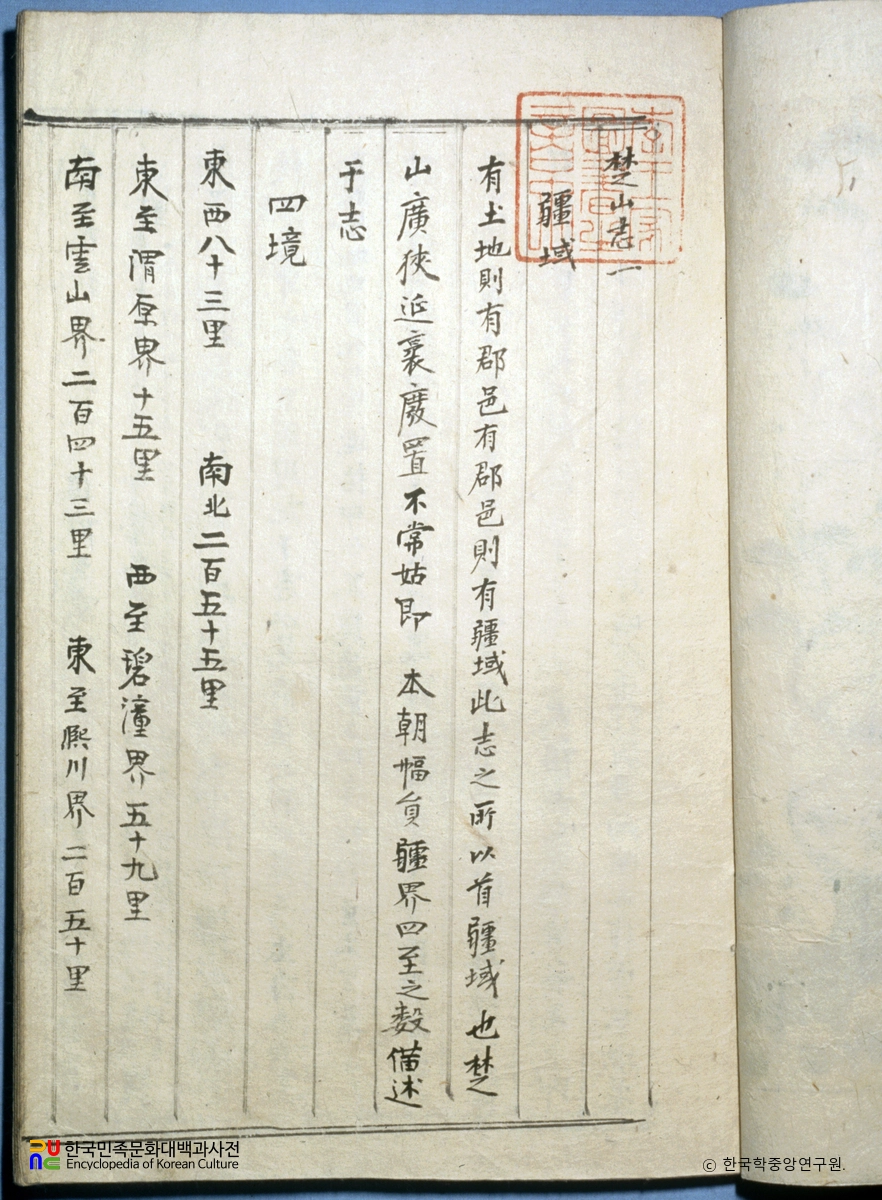 楚山志一
疆域
有土地則有郡邑有郡邑則有疆域此志之所以首疆域也楚
山廣狹延袤廢置不常姑即 本朝幅員疆界四至之數備述
于志
四境
東西八十三里 南北二百五十五里
東至渭原界十五里 西至碧潼界五十九里
南至雲山界二百四十三里 東至熙川界二百五十里
한국민족문화대백과사전
Encyclopedia of Korean Culture
ⓒ 한국학중앙연구원.